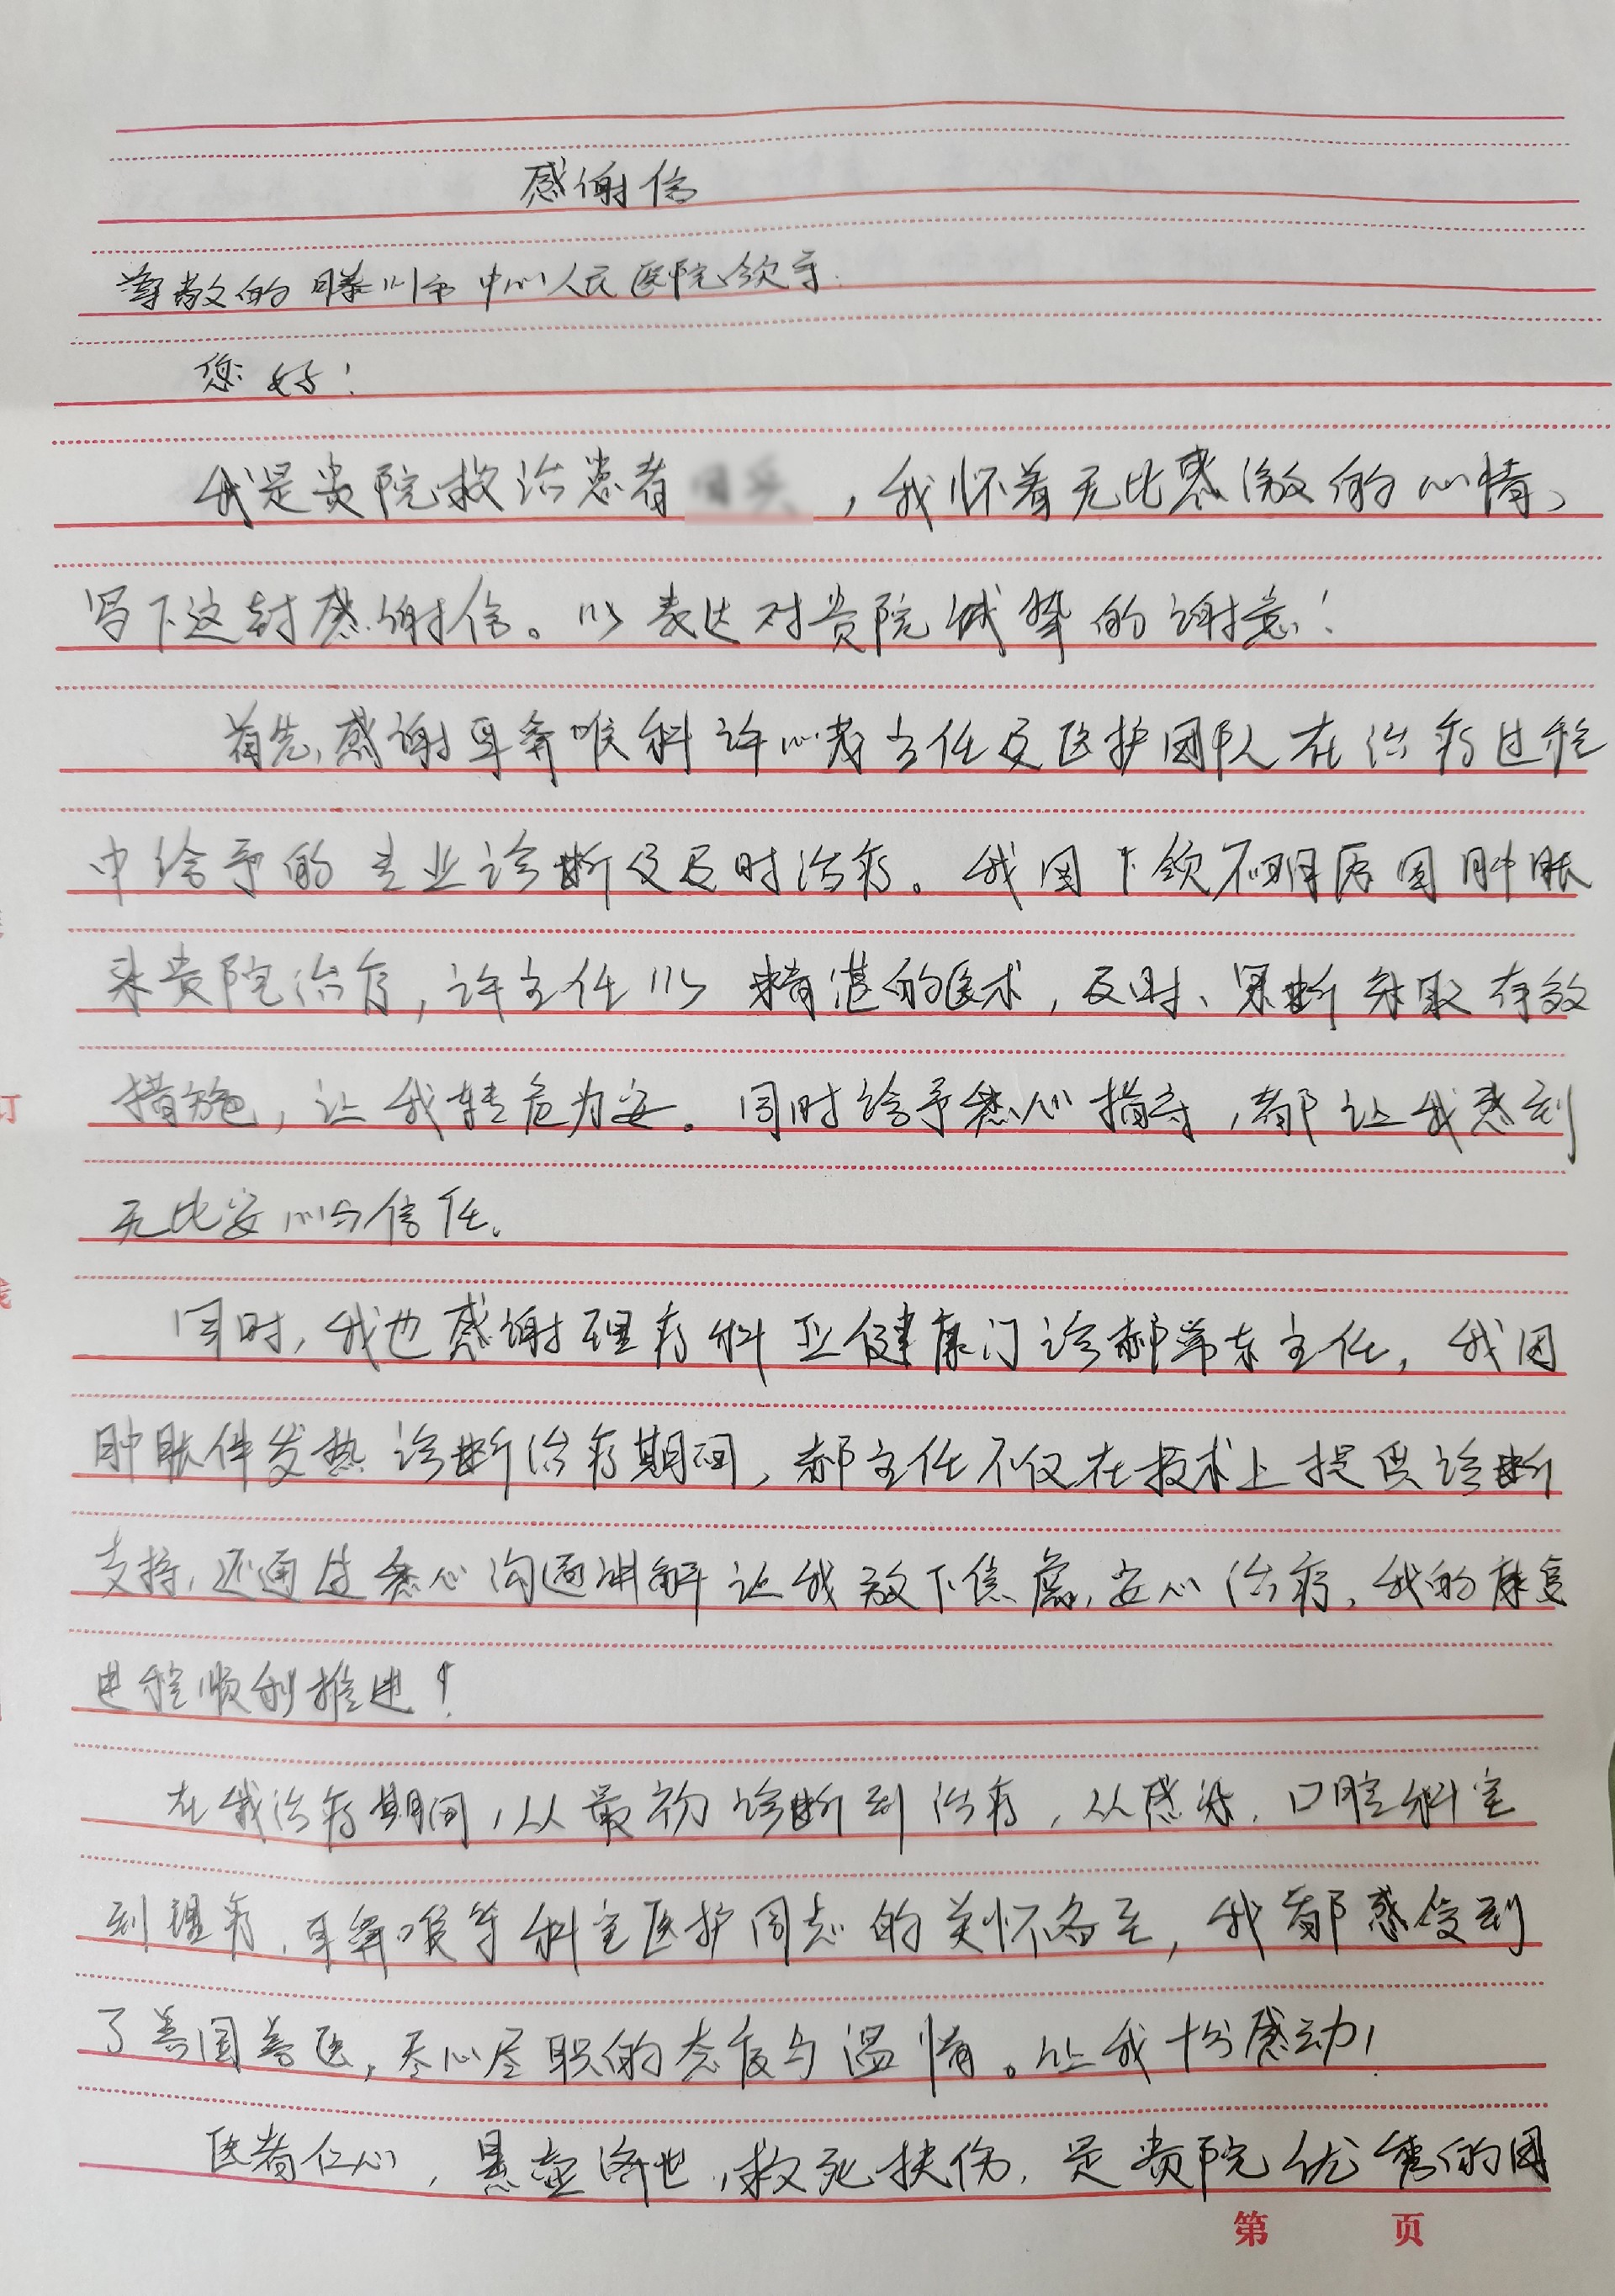 感谢信
尊敬的滕州市中心人民医院领导:
您好!
我是贵院救治患者，我怀着无比感激的心情、
写下这封感谢信。以表达对贵院诚挚的谢意!
首先,感谢耳鼻喉科许心主任及医护团队在治疗过程
中给予的专业诊断及及时治疗。我因下颌不明原因肿胀
来贵院治疗,许主任以精湛的医术,及时、果断采取有效
措施,让我转危为安。同时给予悉心指导,都让我感到
无比安心与信任。
同时,我也感谢理疗科亚健康门诊郝常东主任,我因
肿胀伴发热诊断治疗期间,郝主任不仅在技术上提供诊断
支持,还通过悉心沟通讲解让我放下焦虑,安心治疗,我的康复
进程顺利推进!
在我治疗期间,从最初诊断到治疗,从感染、口腔科室
到理疗、耳鼻喉等科室医护同志的关怀备至,我都感受到
了善国善医,尽心尽职的态度与温情。让我十分感动!
医者仁心,悬壶济世,救死扶伤,是贵院优秀的团
第 页
订
线